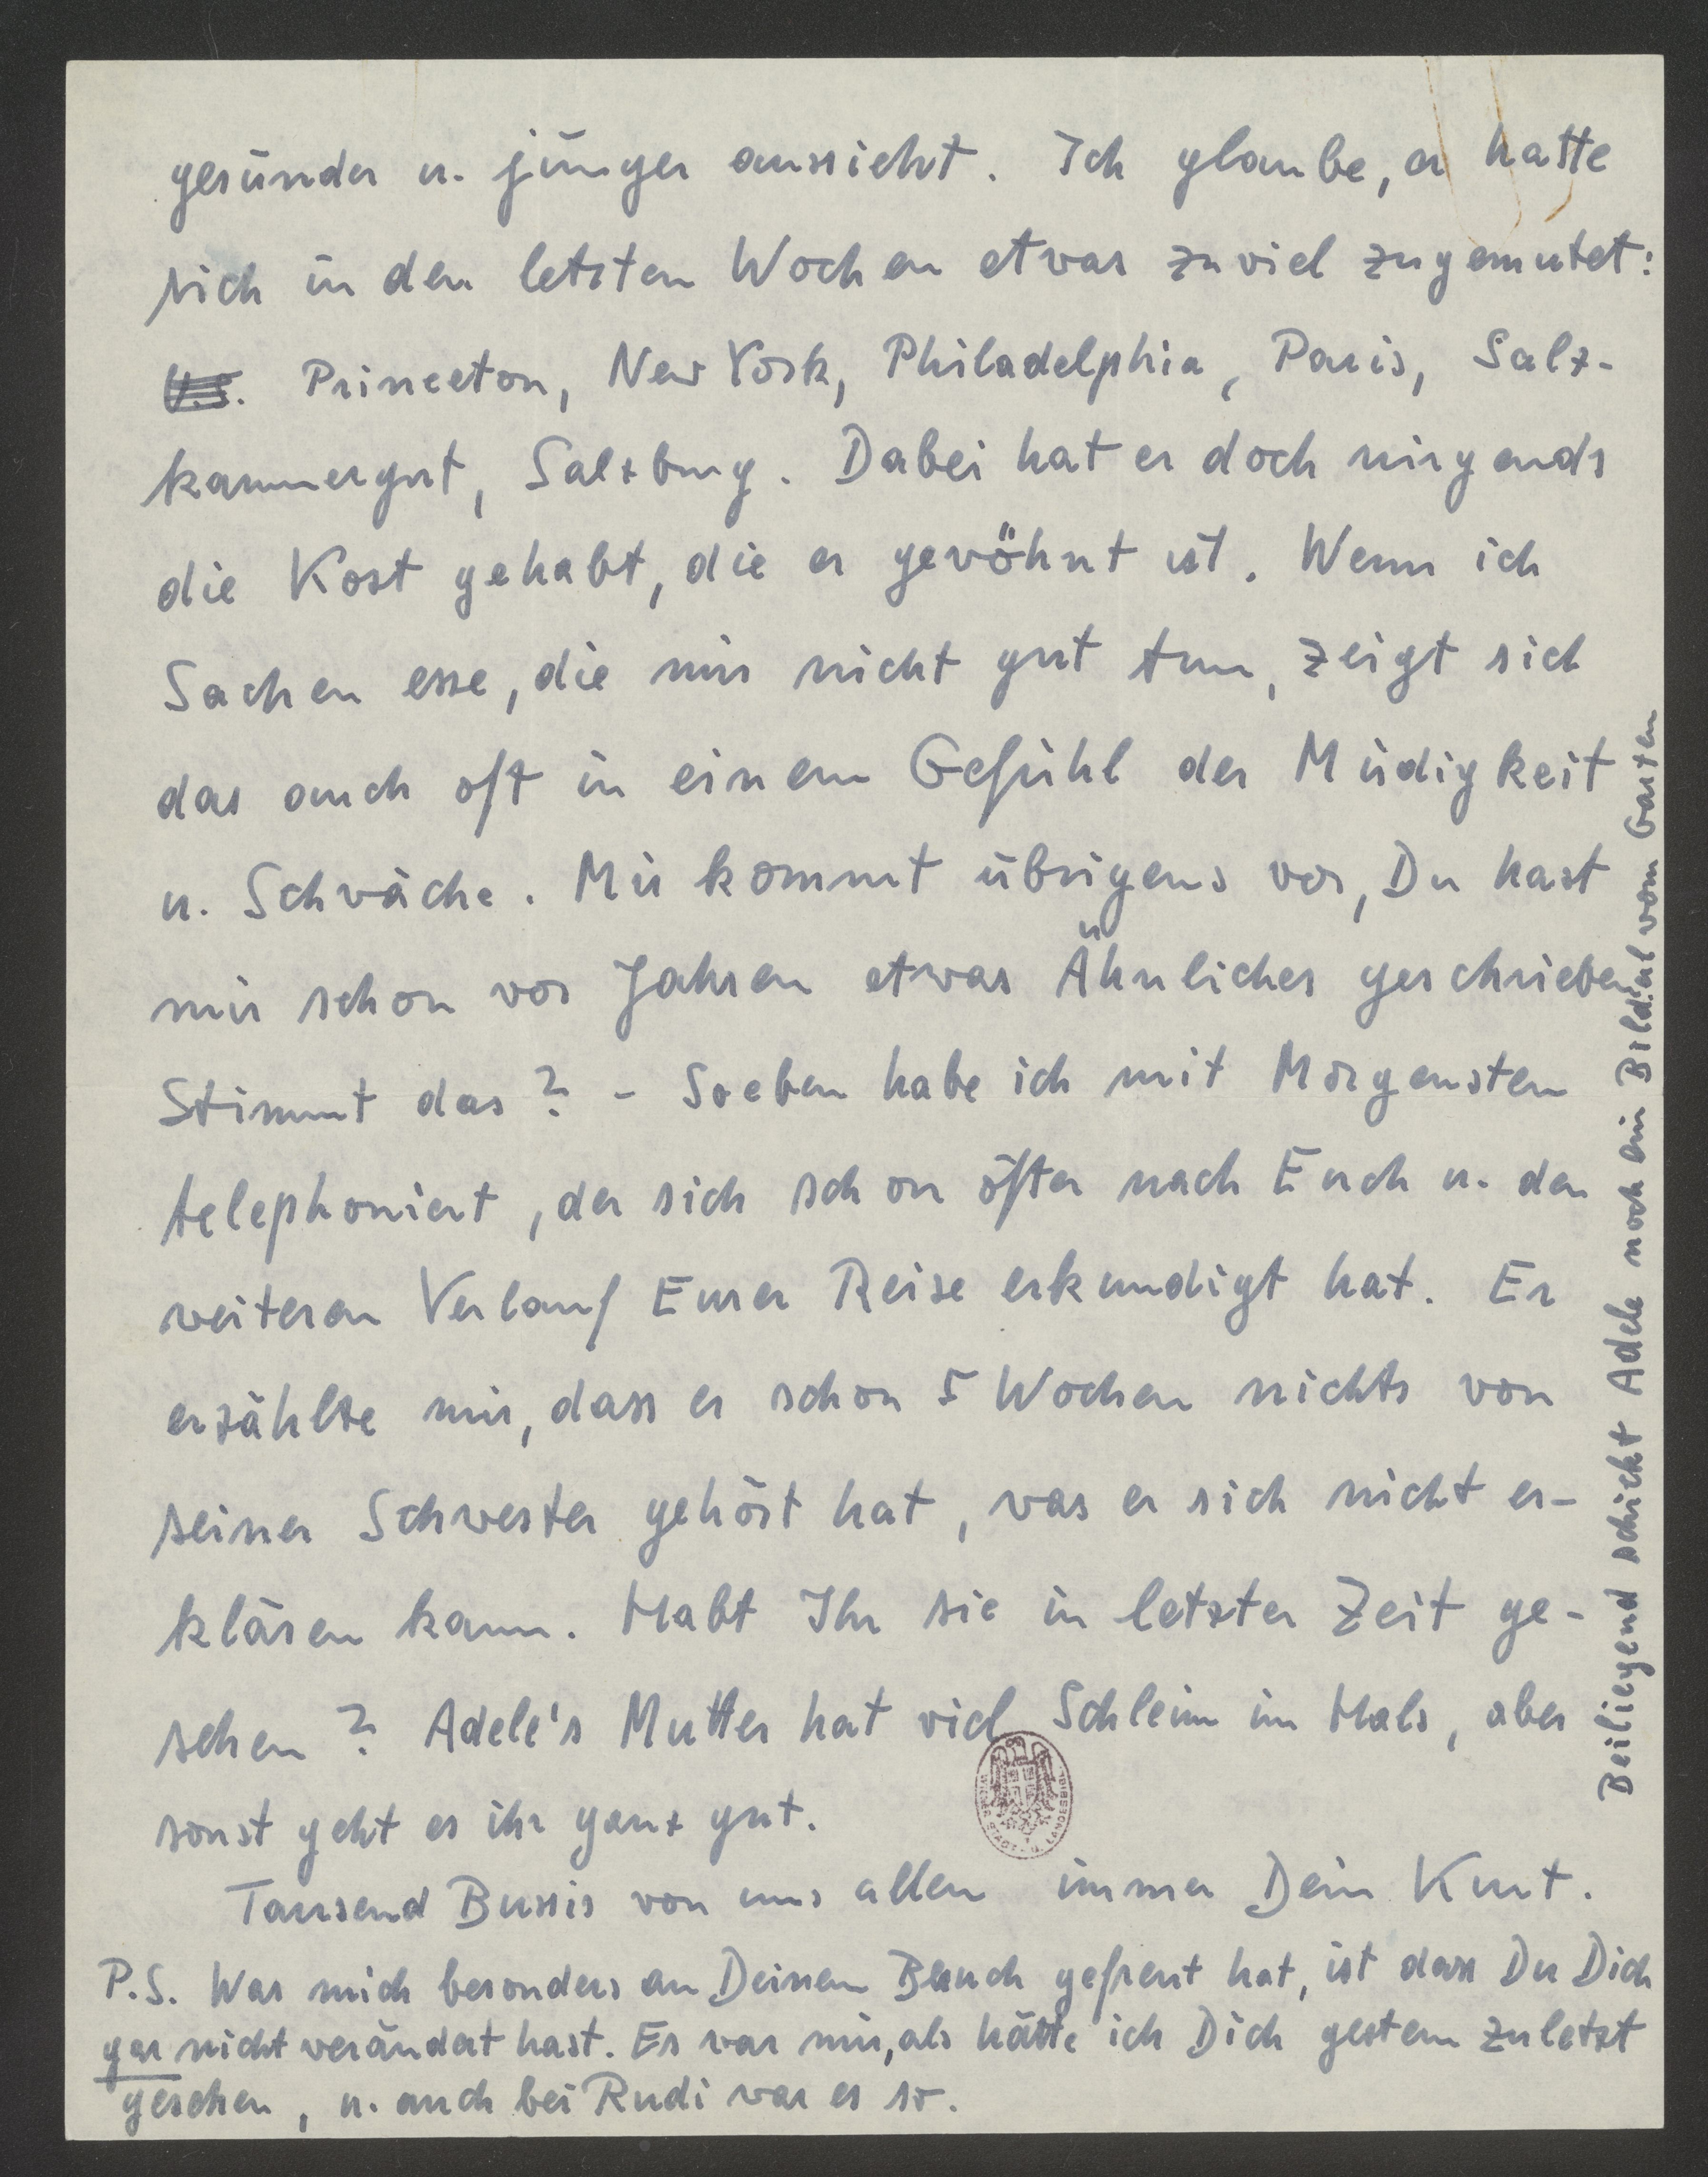 gesünder u. jünger aussieht. Ich glaube, er hatte
sich in den letzten Wochen etwas zuviel zugemutet:
Princeton, New York, Philadelphia, Paris, Salz-
kammergut, Salzburg. Dabei hat er doch nirgends
die Kost gehabt, die er gewöhnt ist. Wenn ich
Sachen esse, die mir nicht gut tun, zeigt sich
das auch oft in einem Gefühl der Müdigkeit
u. Schwäche. Mir kommt übrigens vor, Du hast
mir schon vor Jahren etwas Ähnliches geschrieben.
Stimmt das? - Soeben habe ich mit Morgenstern
telephoniert, der sich schon öfter nach Euch u. den
weiteren Verlauf Eurer Reise erkundigt hat. Er
erzählte mir, dass er schon 5 Wochen nichts von
seiner Schwester gehört hat, was er sich nicht er-
klären kann. Habt Ihr sie in letzter Zeit ge-
sehen? Adele's Mutter hat viel Schleim im Hals, aber
sonst geht es ihr ganz gut.
Tausend Bussis von uns allen immer Dein Kurt.
P.S. Was mich besonders an Deinem Besuch gefreut hat, ist dass Du Dich
gar nicht verändert hast. Es war mir, als hätte ich Dich gestern zuletzt
gesehen, u. auch bei Rudi war es so.
Beiliegend schickt Adele noch ein Bilderl vom Garten